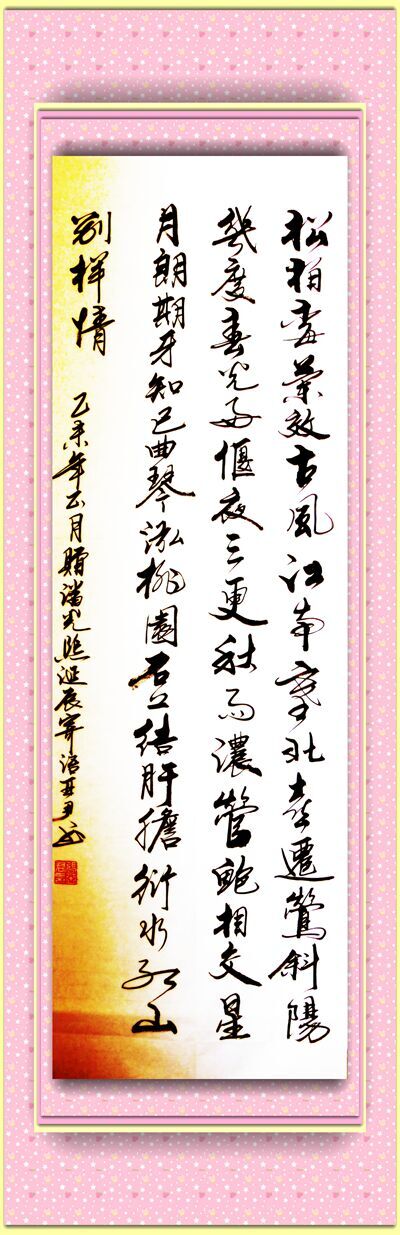 松柏效古風江南塞北喜遷鶯斜陽
幾度春光好偃夜三更秋雨濃管鮑相交星
月朗期牙知己曲琴泓桃園石上結肝膽衍水紅山
別樣情
乙未年五月贈潘光熙誕辰寄語亞尹書